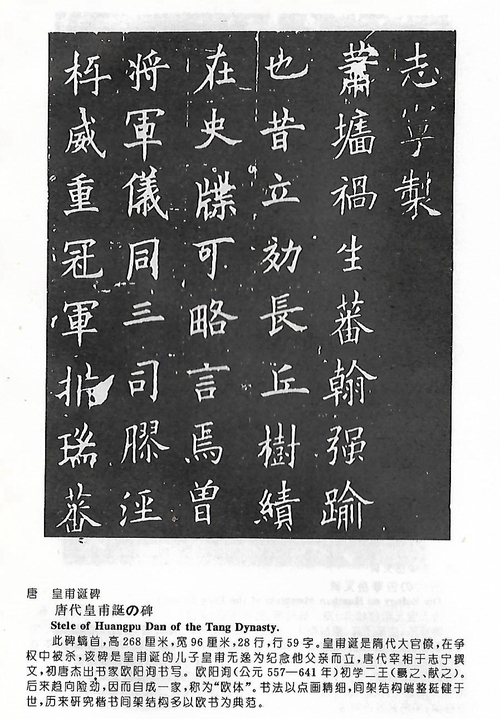 志寧製
蕭墻禍生蕃翰强踰
也昔立効長丘樹績
在史牒可略言焉曾
将軍儀同三司膠涇
枑威重冠軍析瑞蕃
唐　皇甫诞碑
唐代皇甫誕の碑
Stele of Huangpu Dan of the Tang Dynasty.
此碑螭首,高268厘米,宽96厘米,28行,行59字。皇甫诞是隋代大官僚,在争
权中被杀,该碑是皇甫诞的儿子皇甫无逸为纪念他父亲而立,唐代宰相于志宁撰
文,初唐杰出书家欧阳询书写。欧阳询(公元557—641年)初学二王(羲之、献之)。
后来趋向险劲,因而自成一家,称为“欧体”。书法以点画精细,间架结构端整挺健于
世,历来研究楷书间架结构多以欧书为典范。